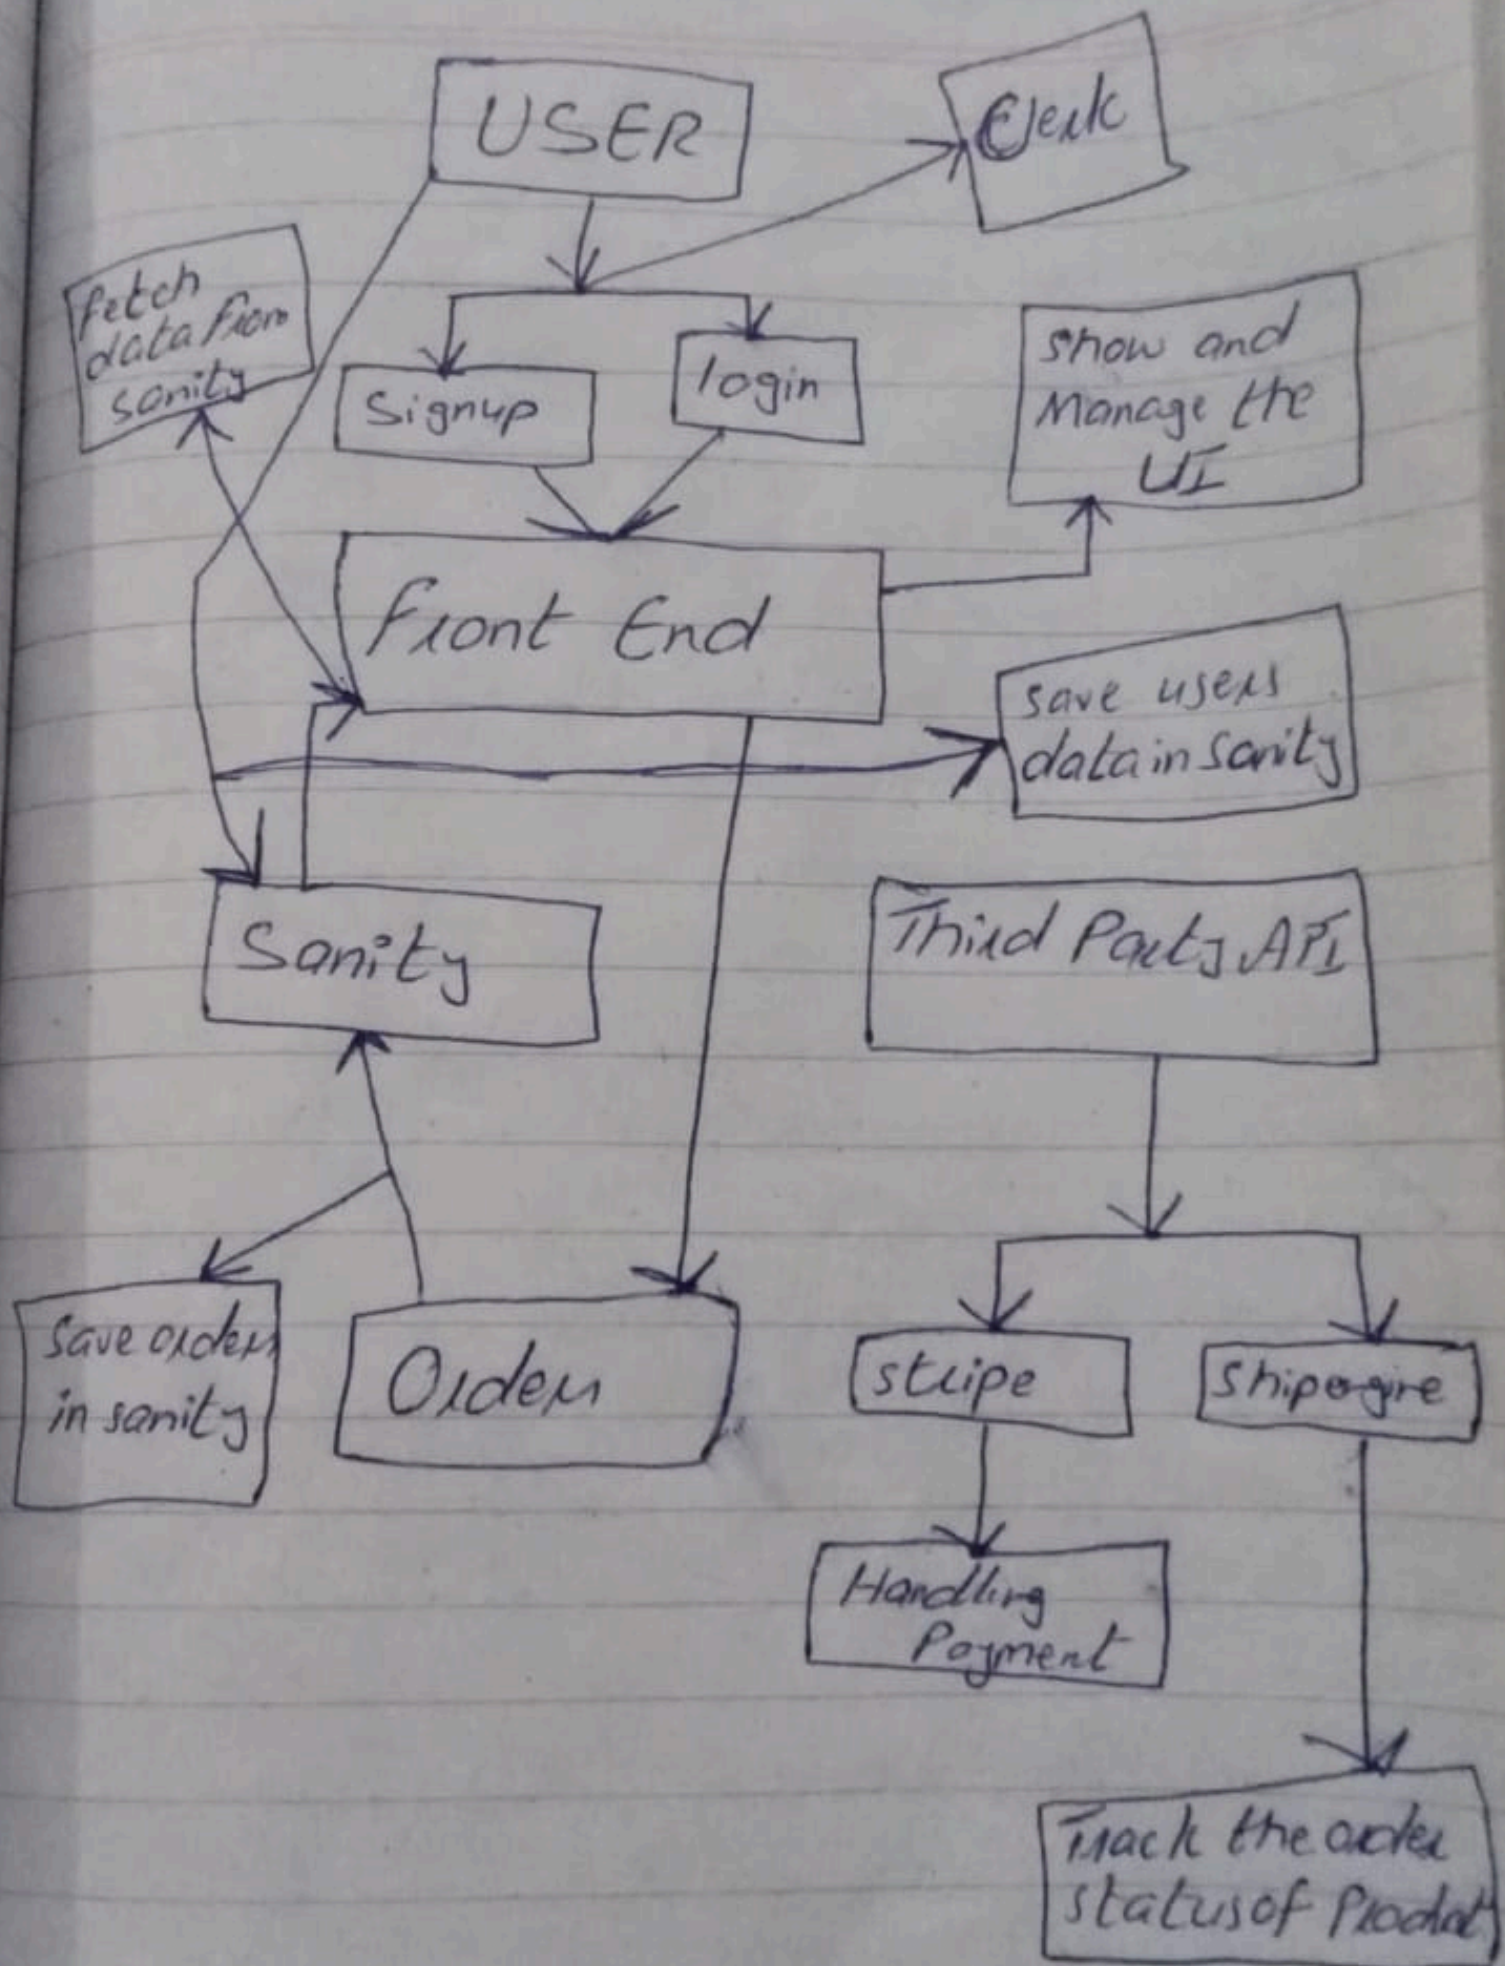 USER
Clerk
fetch
data from
sanity
Signup
login
show and
Manage the
UI
Front End
save users
data in sanity
Sanity
Third Party API
save orders
in sanity
Orders
stripe
Shipengine
Handling
Payment
Track the order
status of Product